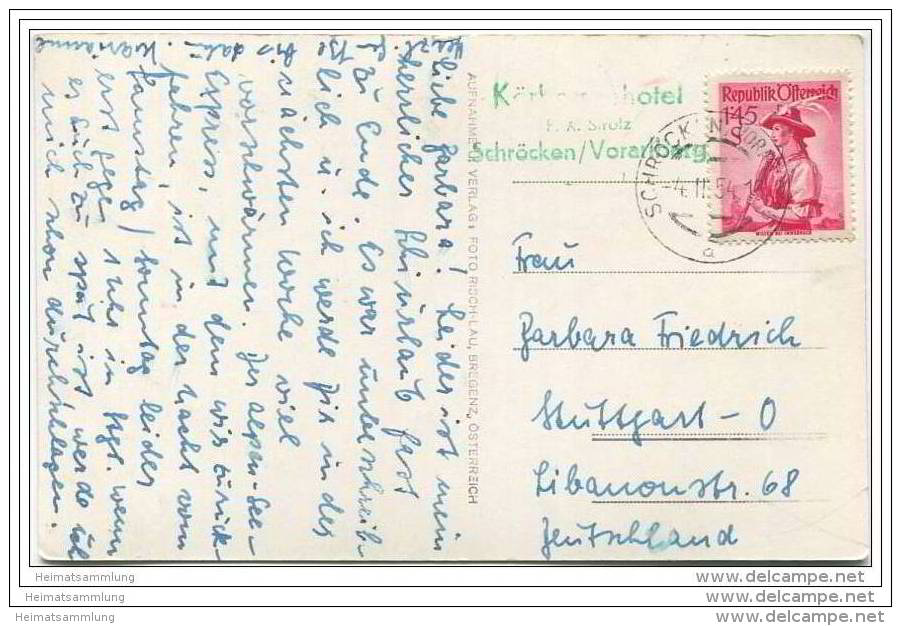 Liebe Barbara! Leider ist mein
herrlicher Skiurlaub fast
zu Ende. Es war unbeschreib-
lich u. ich werde Dir in der
nächsten Woche viel
vorschwärmen. Der Alpen-See-
Express, mit dem wir zurück-
fahren, ist in der Nacht vom
Samstag/Sonntag leider
erst gegen 1 Uhr in Stgt. wenn
es Euch zu spät ist werde ich
mich schon durchschlagen.
Marianne
AUFNAHME U. VERLAG: FOTO RISCH-LAU, BREGENZ, ÖSTERREICH
hotel
Schröcken/Vorarlberg
Republik Österreich
1'45
SCHRÖCKEN
-4.II.54
a
Frau
Barbara Friedrich
Stuttgart-O
Libanonstr. 68
Deutschland
Heimatsammlung
Heimatsammlung
Heimatsammlung
www.delcampe.net
www.delcampe.net
www.delcampe.net